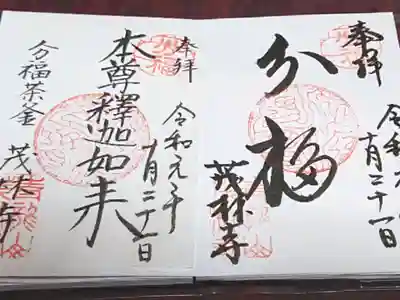 奉拝
令和元年
十月三十一日
分福
茂林寺
奉拝
令和元年
十月三十一日
本尊釋迦如来
分福茶釜
茂林寺